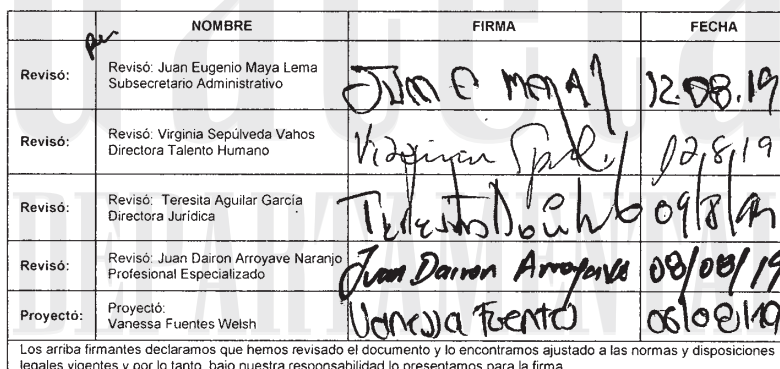 NOMBRE FIRMA FECHA
Revisó: Revisó: Juan Eugenio Maya Lema
Subsecretario Administrativo
Juan E Maya 12.08.19
Revisó: Revisó: Virginia Sepúlveda Vahos
Directora Talento Humano
Virginia 12,8,19
Revisó: Revisó: Teresita Aguilar García
Directora Jurídica
Teresita 09/8/
Revisó: Revisó: Juan Dairon Arroyave Naranjo
Profesional Especializado
Juan Dairon Arroyave 08/08/19
Proyectó: Proyectó:
Vanessa Fuentes Welsh
Vanessa Fuentes 06/08/19
Los arriba firmantes declaramos que hemos revisado el documento y lo encontramos ajustado a las normas y disposiciones
legales vigentes y por lo tanto, bajo nuestra responsabilidad lo presentamos para la firma.